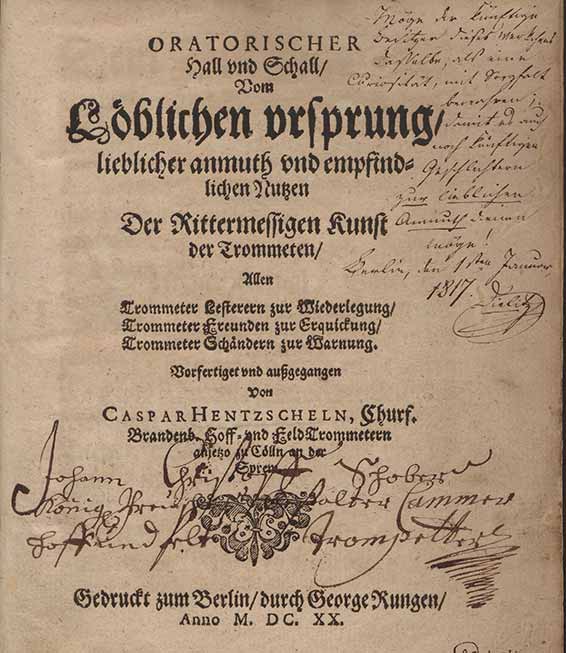 ORATORISCHER
Hall vnd Schall/
Vom
Löblichen vrsprung/
lieblicher anmuth vnd empfind-
lichen Nutzen
Der Rittermessigen Kunst
der Trommeten/
Allen
Trommeter Lesterern zur Wiederlegung/
Trommeter Freunden zur Erquickung/
Trommeter Schändern zur Warnung.
Vorfertiget vnd außgegangen
Von
CASPAR HENTZSCHELN, Churf.
Brandenb. Hoff- vnd FeldTrommetern
anjetzo zu Cölln an der
Sprew
Gedruckt zum Berlin/ durch George Rungen/
Anno M. DC. XX.
Möge der künftige
Besitzer dieses Werkchens
dasselbe, als eine
Curiosität, mit Sorgfalt
bewahren;
damit es auch
noch künftigen
Geschlechtern
zur lieblichen
Anmuth dienen
möge!
Berlin, den 1sten Januar
1817. Dielitz
Johann Schober
König Cammer
Hoff und felt Trompetter